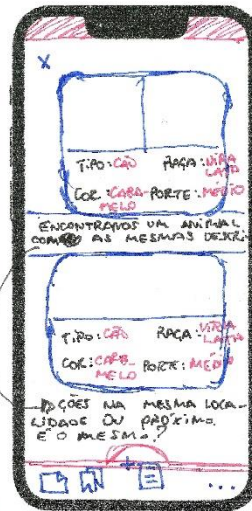 X
TIPO: CÃO RAÇA: VIRA LATA
COR: CARA-MELO PORTE: MÉDIO
ENCONTRAMOS UM ANIMAL
COM AS MESMAS DESCRI-
TIPO: CÃO RAÇA: VIRA LATA
COR: CARA-MELO PORTE: MÉDIO
ÇÕES NA MESMA LOCA-
LIDADE OU PRÓXIMO.
É O MESMO?
+
...